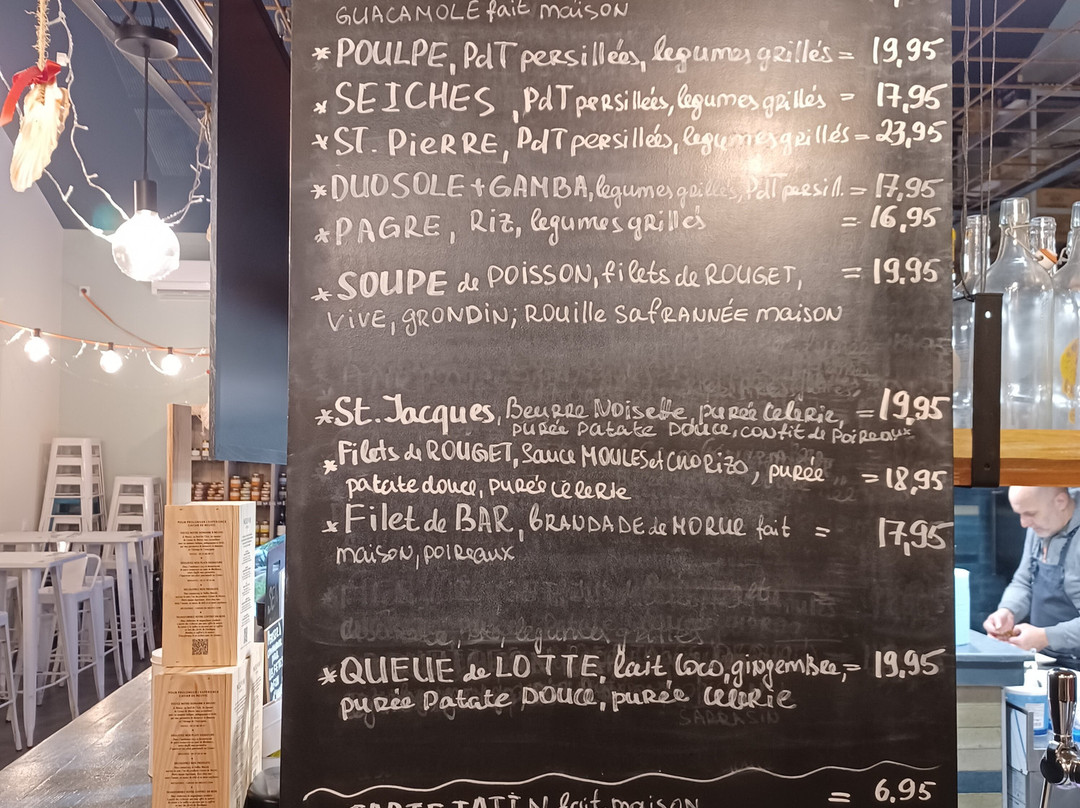 GUACAMOLE fait maison
* POULPE, PdT persillées, legumes grillés = 19,95
* SEICHES, PdT persillées, legumes grillés = 17,95
* ST. PiERRE, PdT persillées, legumes grillés = 23,95
* DUO SOLE + GAMBA, legumes grillés, PdT persil. = 17,95
* PAGRE, Riz, legumes grillés = 16,95
* SOUPE de POISSON, filets de ROUGET, = 19,95
VIVE, GRONDIN; ROUille SafRANNÉE maison
* St. Jacques, Beurre Noisette, purée celerie, = 19,95
purée patate Douce, confit de Poireaux
* Filets de ROUGET, Sauce MOULES et CHORIZO, purée = 18,95
patate douce, purée celeRie
* Filet de BAR, BRANDADE de MORUE fait = 17,95
maison, poireaux
* QUEUE de LOTTE, lait coco, gingembre, = 19,95
purée Patate DOUCE, purée celeRie
SARRASIN
TARTE TATIN fait maison = 6,95